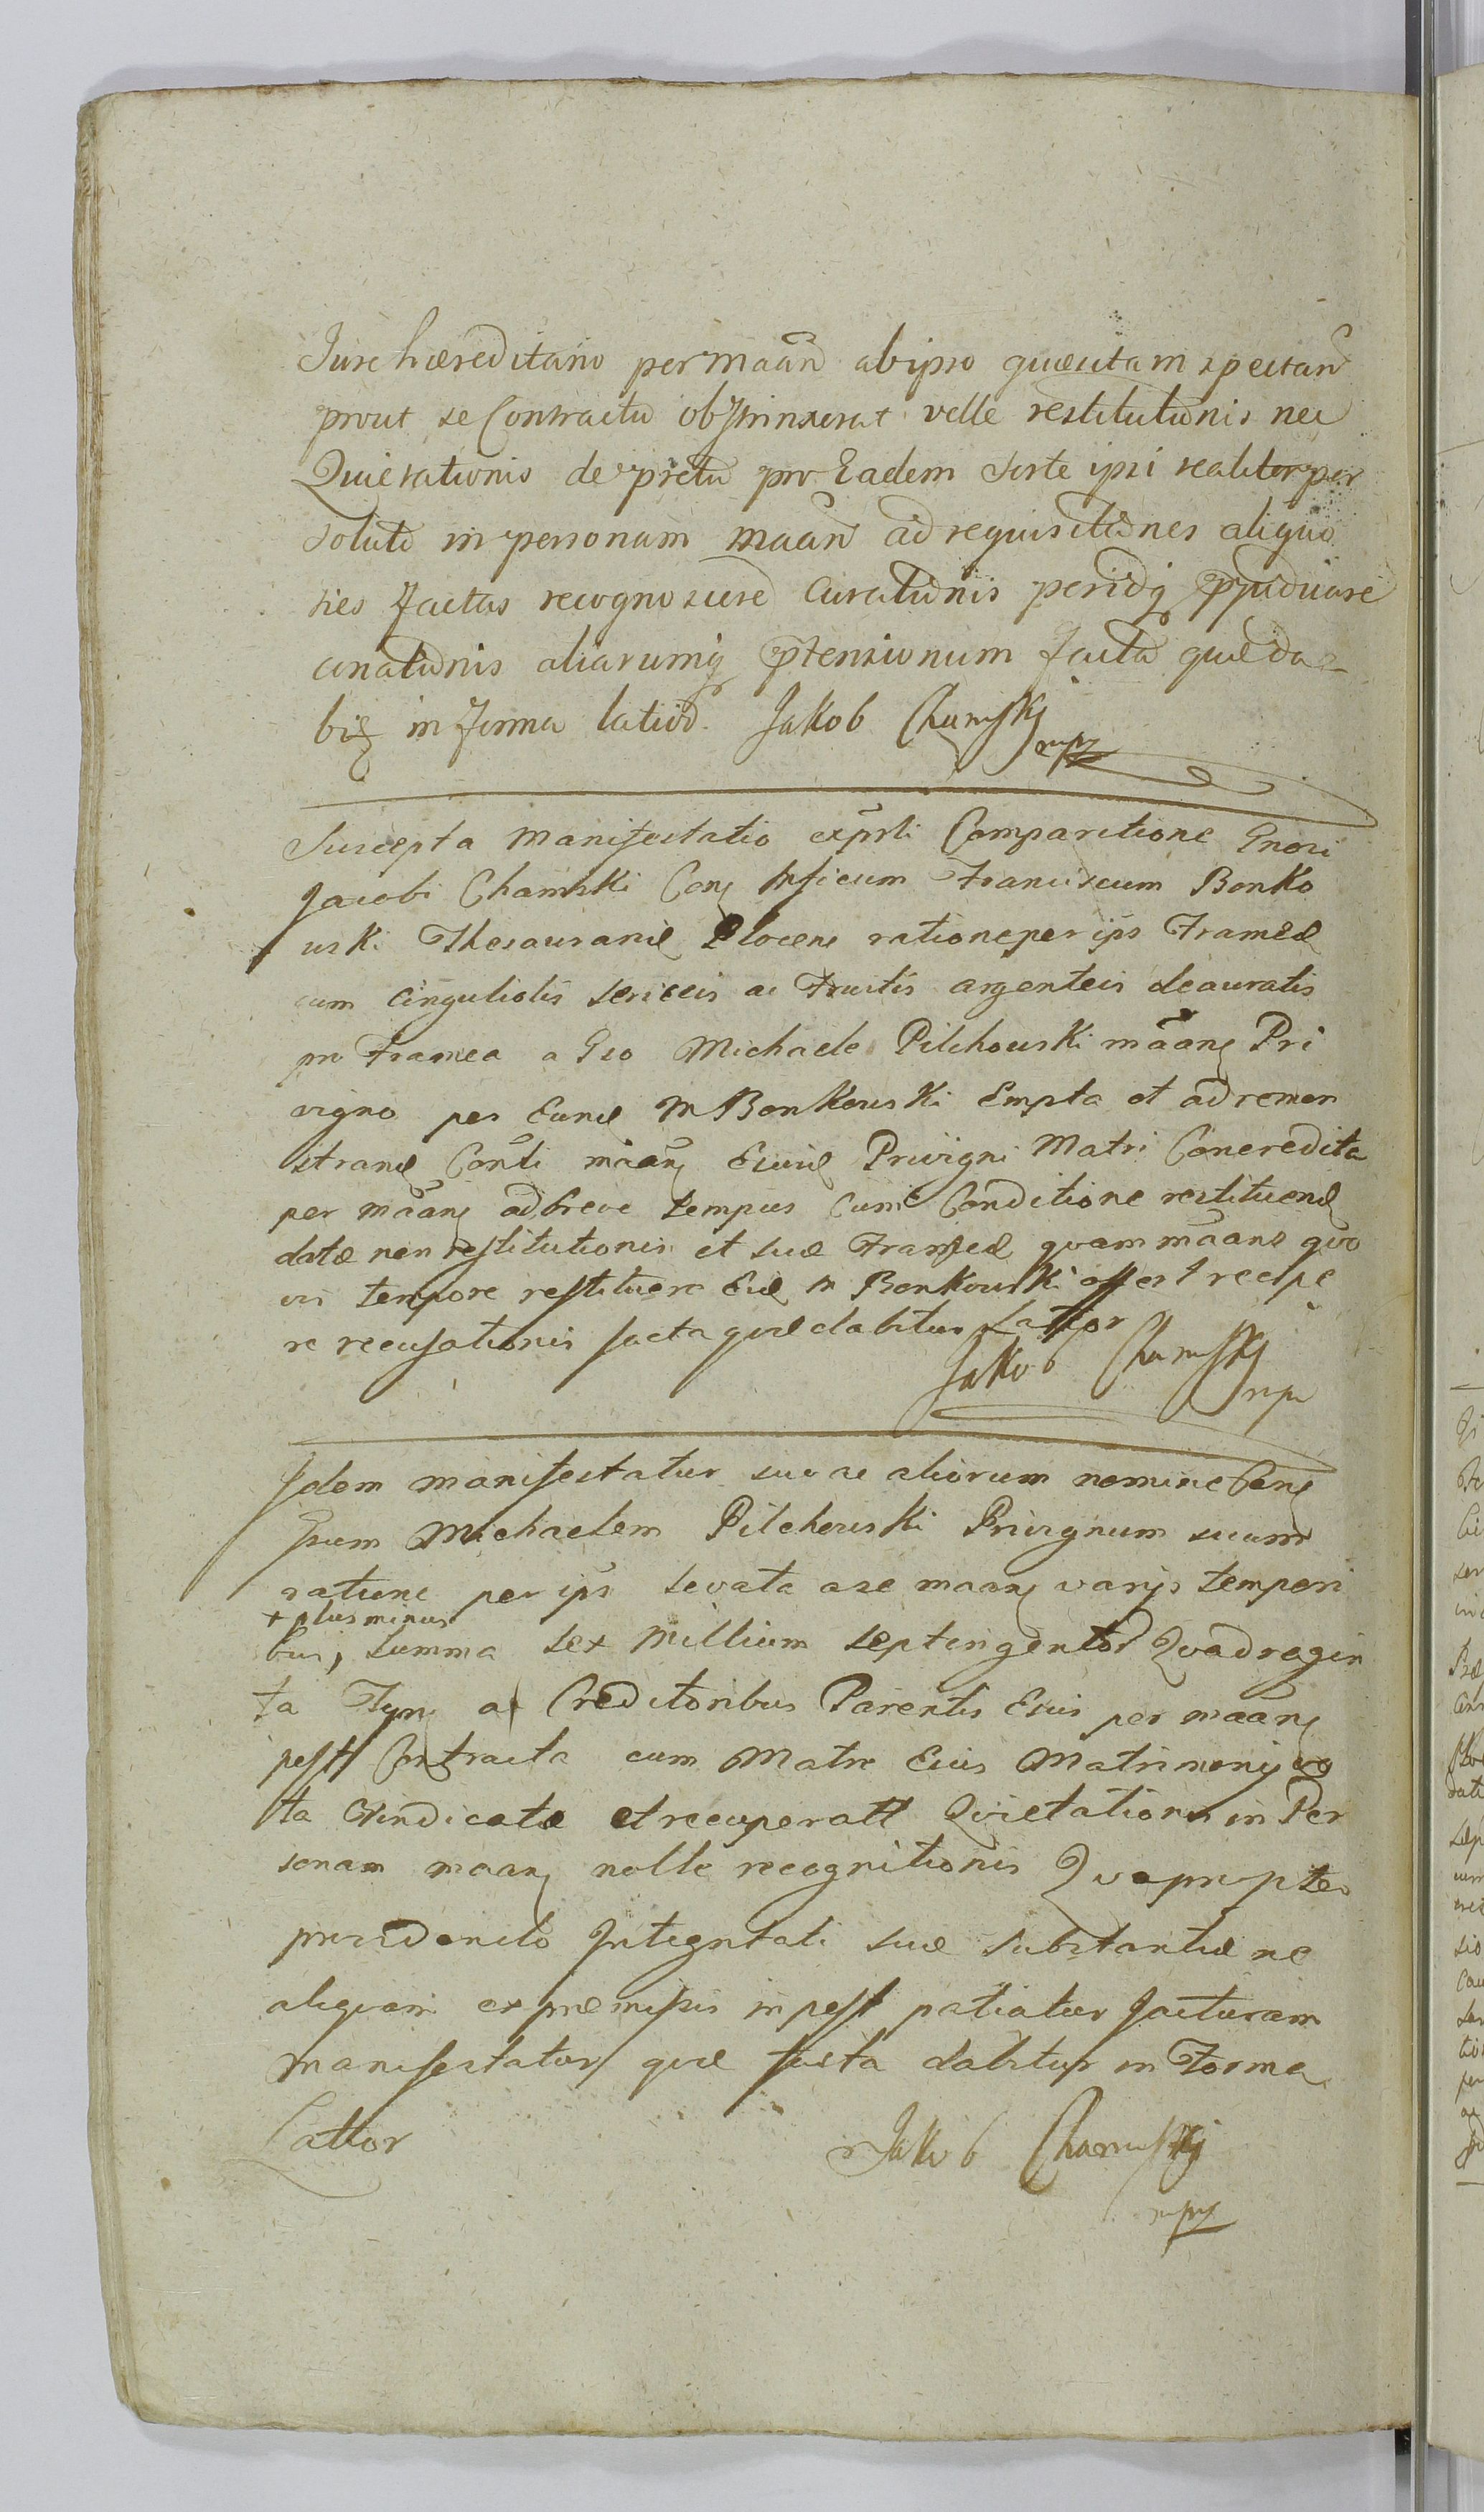 Jure hæreditario per maan̄ ab ipso quæsitam spectan̄
prout se Contractu obstrinxerat velle restitutionis nec
Quietationis de pretio pro Eadem sorte ipsi realiter per
soluto in personam maan̄ ad requisitiones aliquo
ties factas recognoscere curationis
aliarumq ptensionum facta quæ da
biť in forma latiori. Jakob Chamskj
mpr
Suscepta Manifestatio exprsti Comparitione Gnosi
Jacobi Chamski Con Mficum Franciscum Bonko
wski Thesaurariū Plocen ratione per ips Frameæ
cum cinguliolis sericeis ac Fructis argenteis deauratis
pro Framea a Gso Michaele Pilchowski māan Pri
vigno per Eund M Bonkowski Empta et ad remon
strand Conti māan Eiusd Privigni Matri Concredita
per māan ad breve tempus cum Conditione restituend
datæ non restitutionis et suæ Frameæ quam māans quo
vis tempore restituere Eid M Bonkowski offert recipe
re recusationis facta quæ dabitur Lattior
Jakob Chamskj
mpr
Idem manifestatur suo ac aliorum nomine Con
Gsum Michaelem Pilchowski Privignum suum
ratione per ips levata a se maan varijs tempori
+ plus minus
bus, summa sex Millium septingentor Quadragin
ta Flyn a Creditoribus Parentis Eius per māan
post Contracta cum Matre Eius Matrimonij vo
ta Vindicatæ et recuperatt Quietationis in Per
sonam maan nolle recognitionis Quapropter
providendo Integritati suæ substantiæ ne
aliquam ex præmissis in post patiatur jacturam
manifestatur quæ facta dabitur in Forma
Lattior Jakob Chamskj
mpr